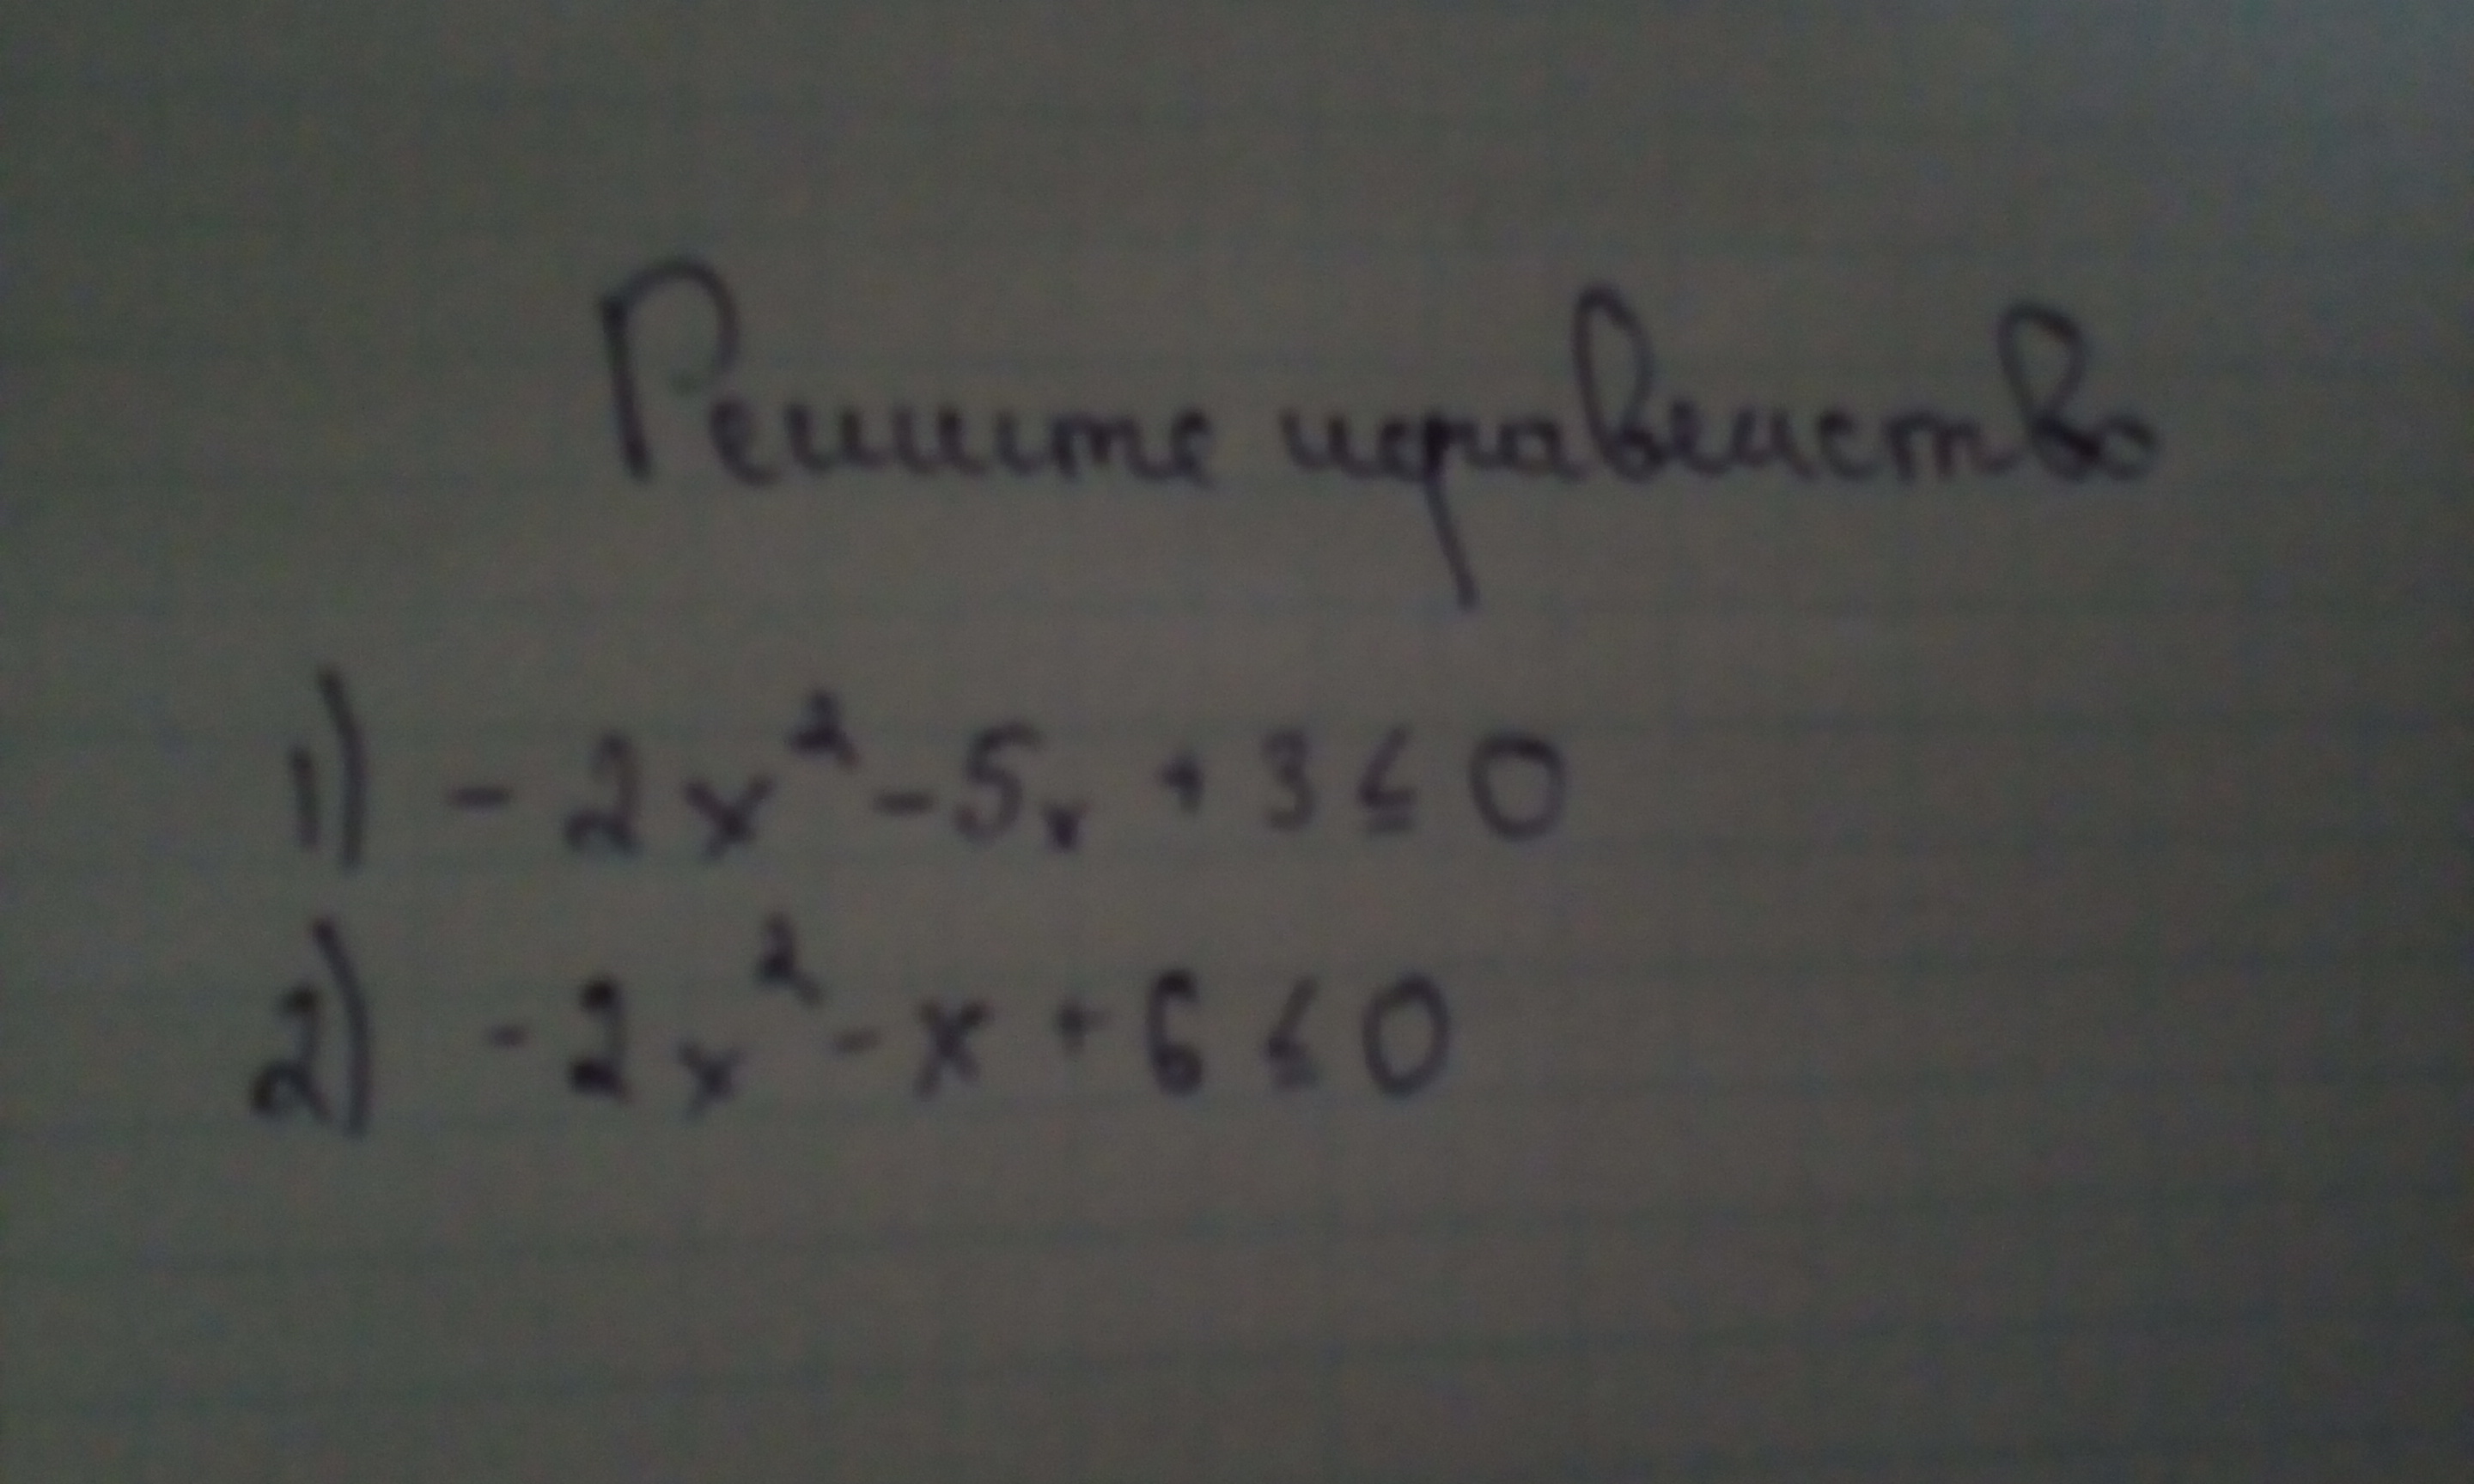 Решите неравенство
1) - 2x² - 5x + 3 ≤ 0
2) - 2x² - x + 6 ≤ 0